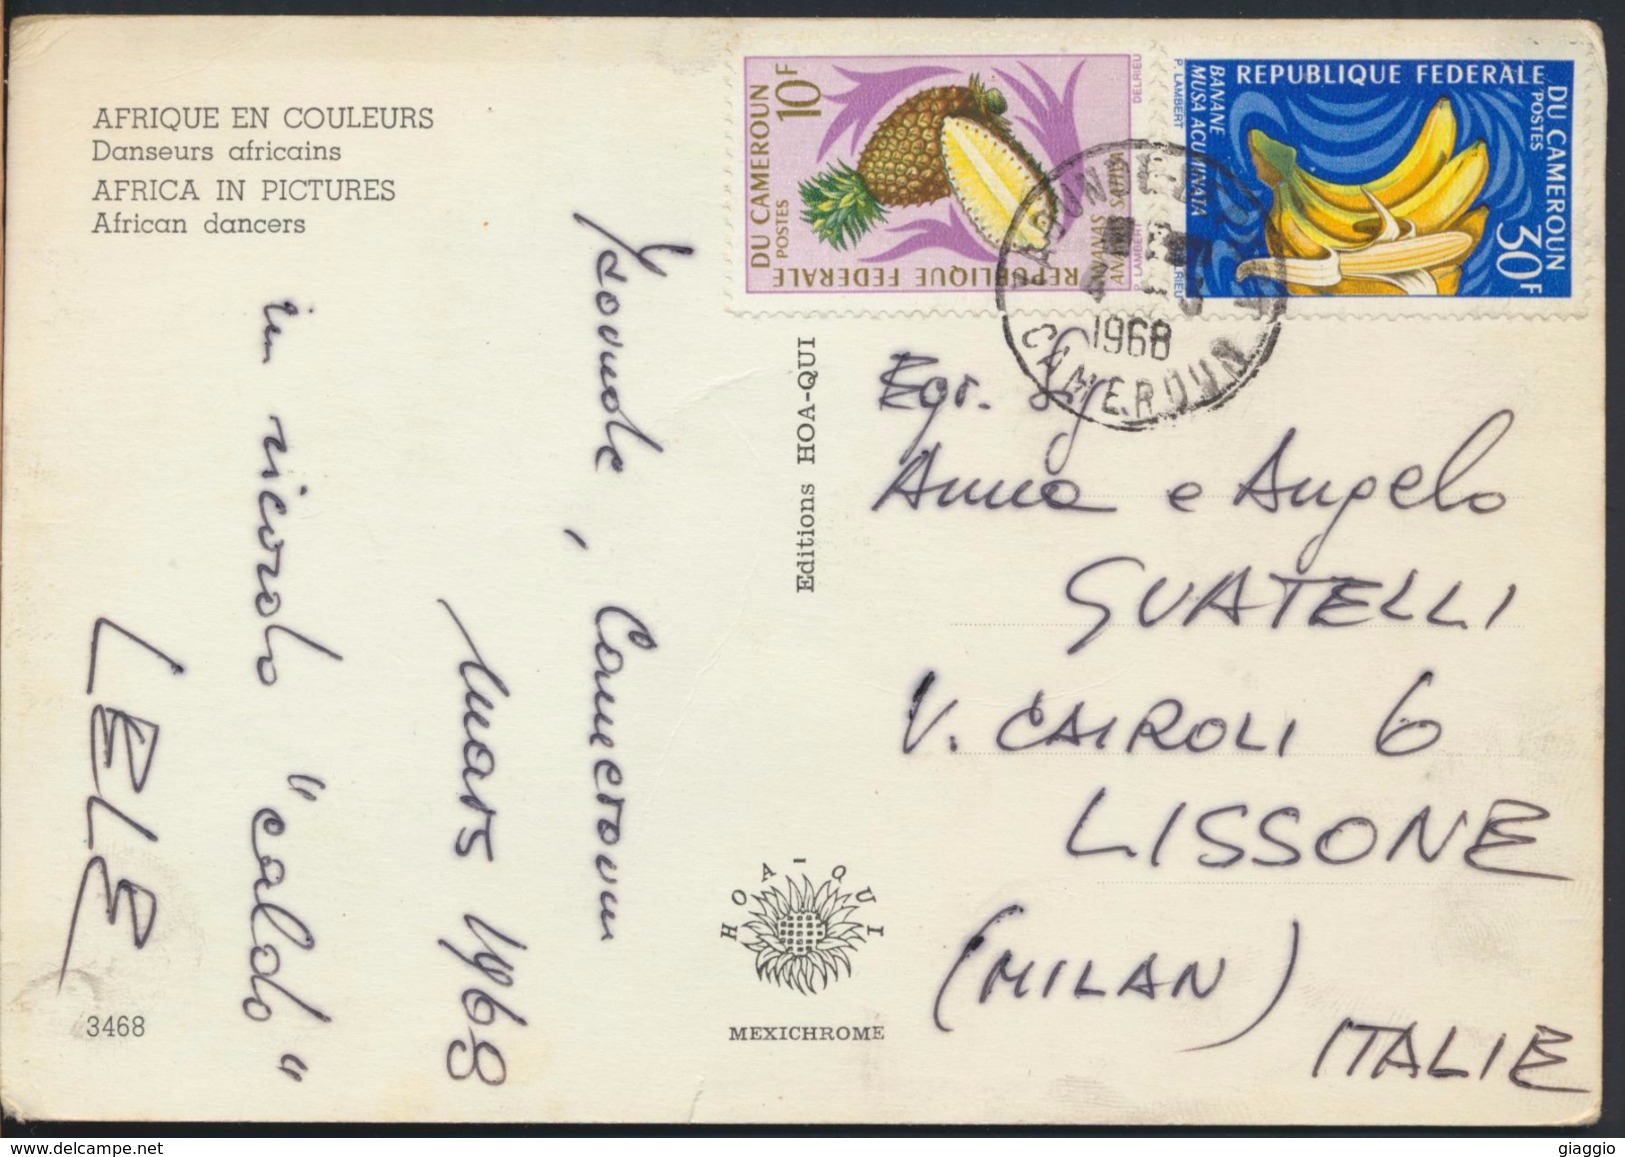 AFRIQUE EN COULEURS
Danseurs africains
AFRICA IN PICTURES
African dancers
Yaoundé, Cameroun
Mars 1968
in ricordo "caldo"
LELE
3468
Editions HOA-QUI
HOA-QUI
MEXICHROME
10F
REPUBLIQUE FEDERALE
DU CAMEROUN
POSTES
ANANAS
ANANAS SATIVA
P. LAMBERT
DELRIEU
REPUBLIQUE FEDERALE
DU CAMEROUN
POSTES
30F
BANANE
MUSA ACUMINATA
P. LAMBERT
1968
CAMEROUN
Egr. Sig
Anna e Angelo
GUATELLI
V. CAIROLI 6
LISSONE
(MILAN)
ITALIE
delcampe.net
giaggio